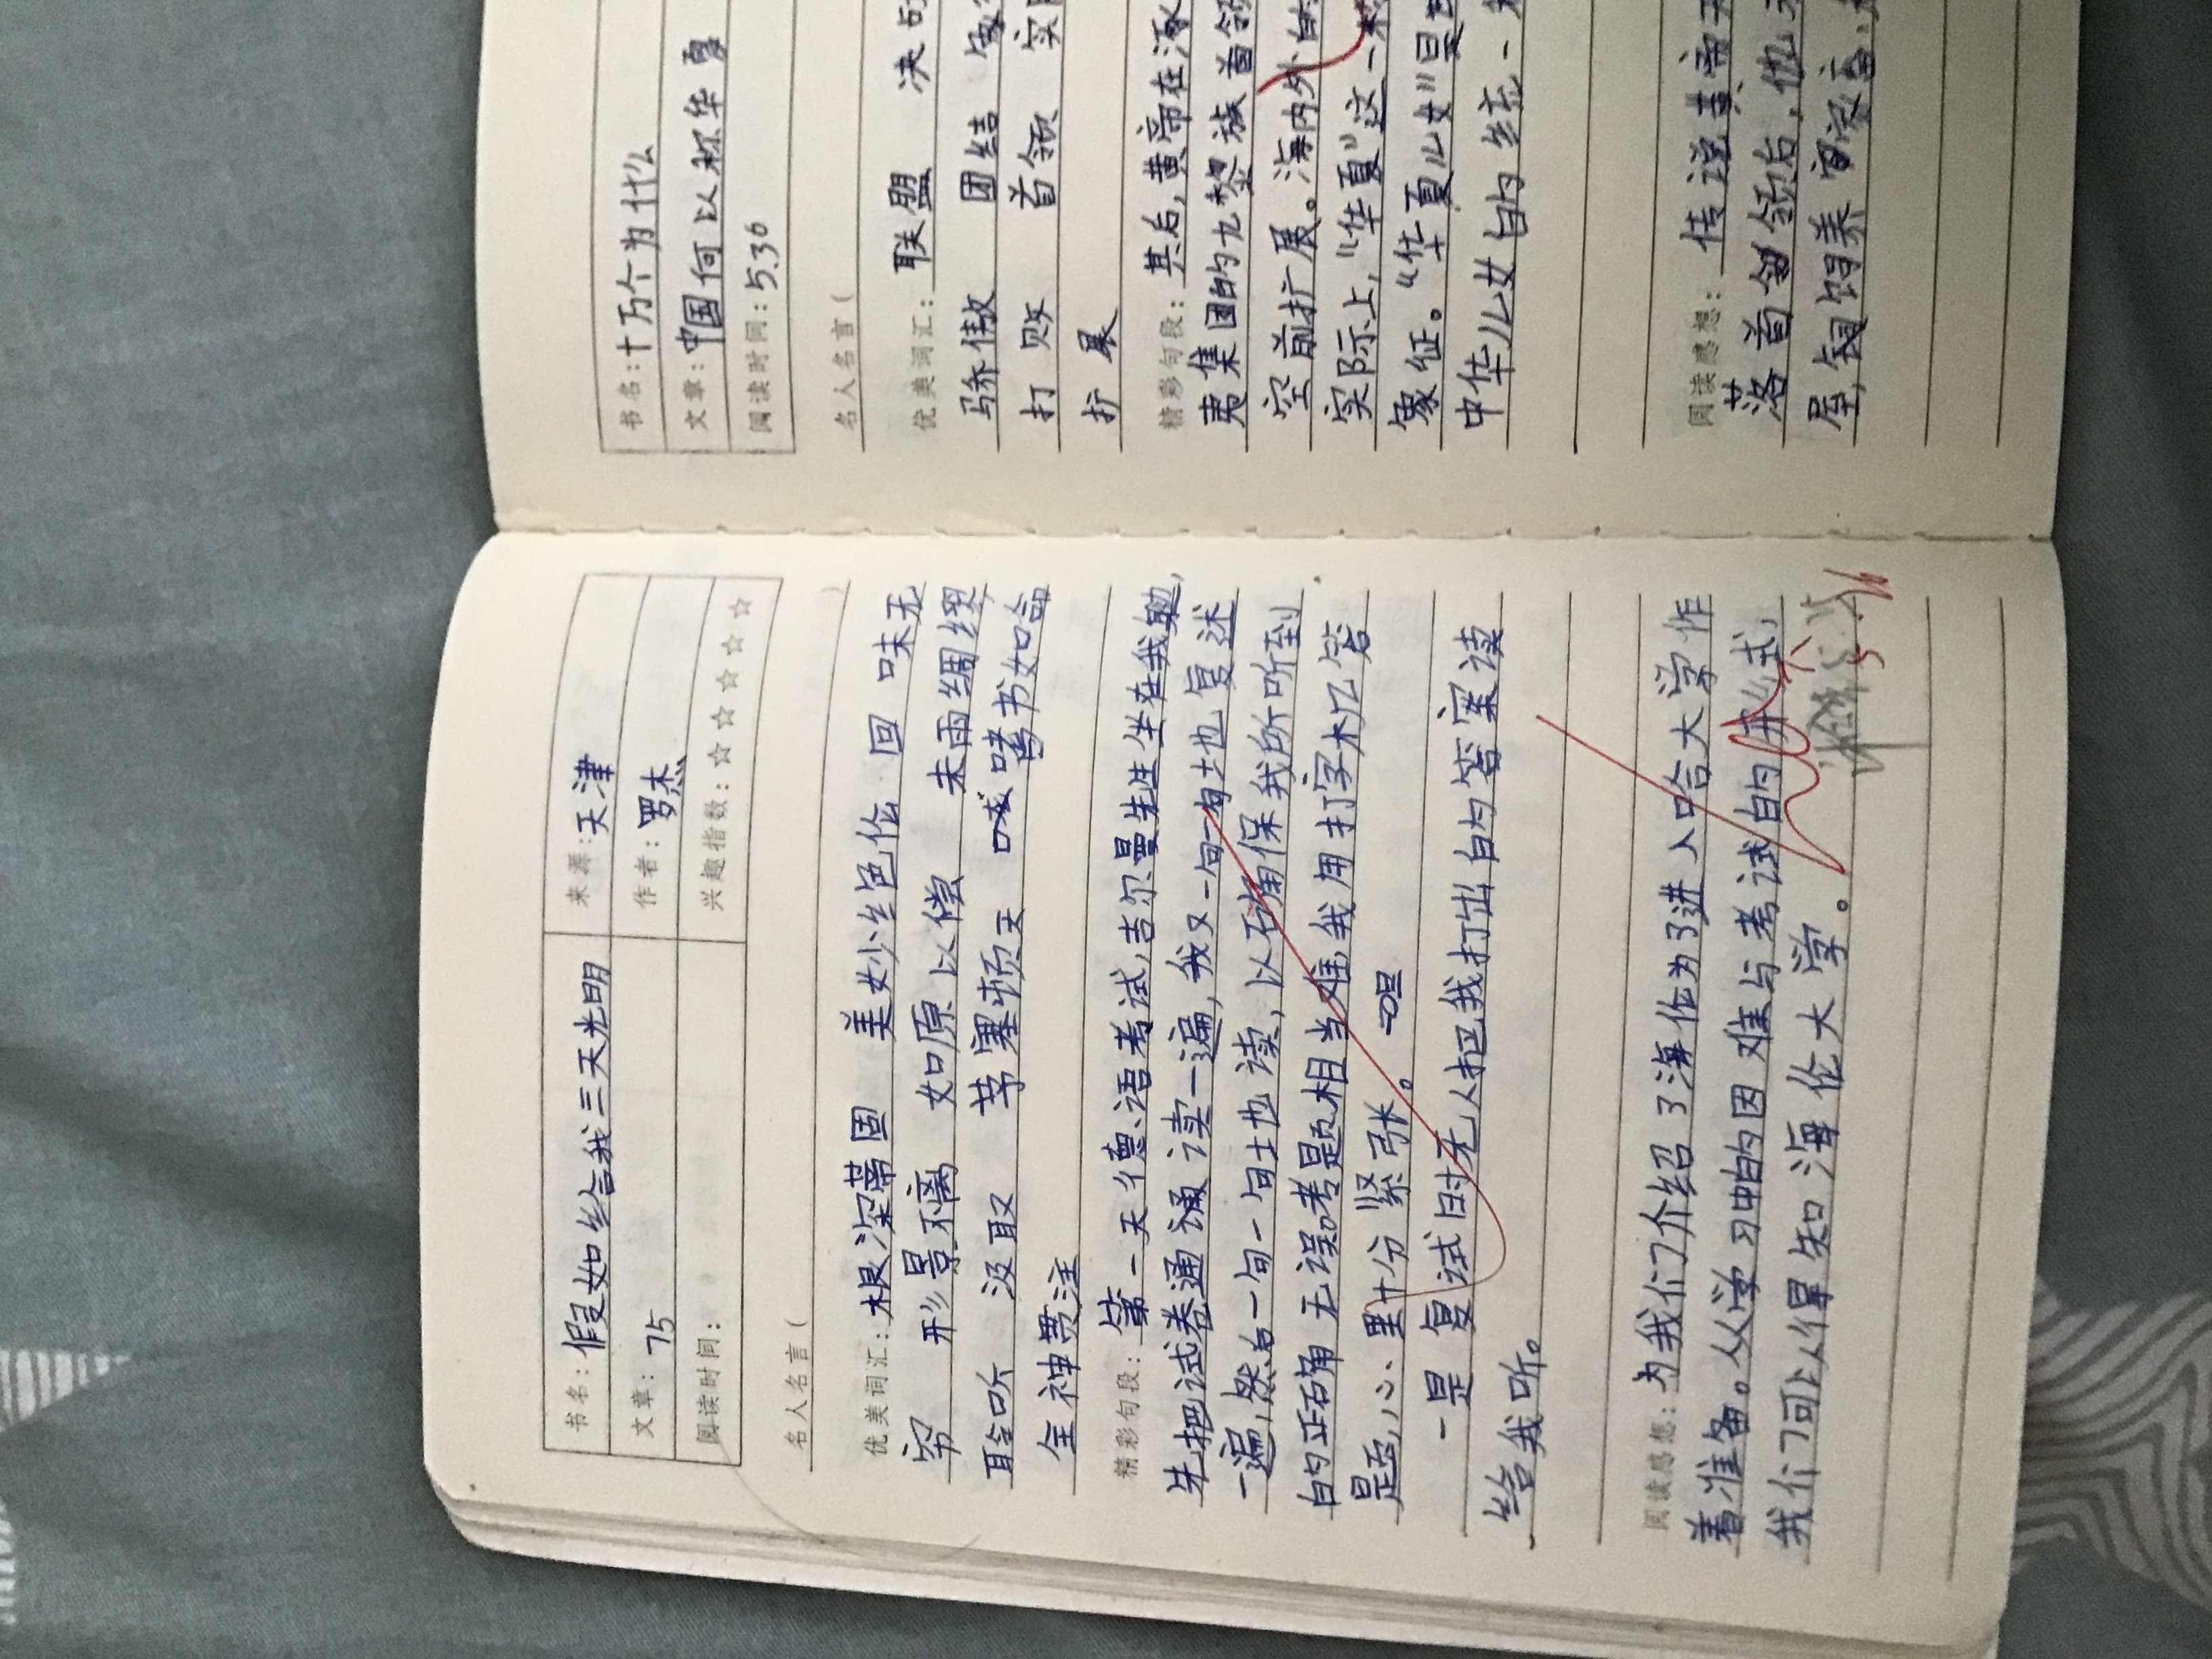 书名：假如给我三天光明 来源：天津
文章：75 作者：罗杰
阅读时间： 兴趣指数：☆☆☆☆☆
名人名言（ ）
优美词汇：根深蒂固 美妙绝伦 回味无
穷 形景不离 如原以偿 未雨绸缪
聆听 汲取 茅塞顿天 嗜书如命
全神贯注
精彩句段：第一天德语考试，吉尔曼先生坐在我
先把试卷通诵读一遍，我又一句一句地也复述
一遍，然后一句一句地也读，以确保我所听到
的正确无误。考题相当难，我用打字机答
是否，心里十分紧张。
一是复试时无人把我打出的答案读
给我听。
阅读感想：为我们介绍了海作为了进入哈大学作
着准备。从学习中的困难与考试的 式，
我们可以得知海伦大学。
5.
书名：十万个为什么
文章：中国何以称华夏
阅读时间：5.30
名人名言（
优美词汇：联盟 决
骄傲 团结
打败 首领 实
扩展
精彩句段：其后，黄帝在涿
夷集团的九黎族首领
空前扩展。海内外的
实际上，“华夏”这一
象征。“华夏儿女”是
中华儿女的统一
阅读感想：传说黄帝
落首领后，他
屋，饲养家畜，